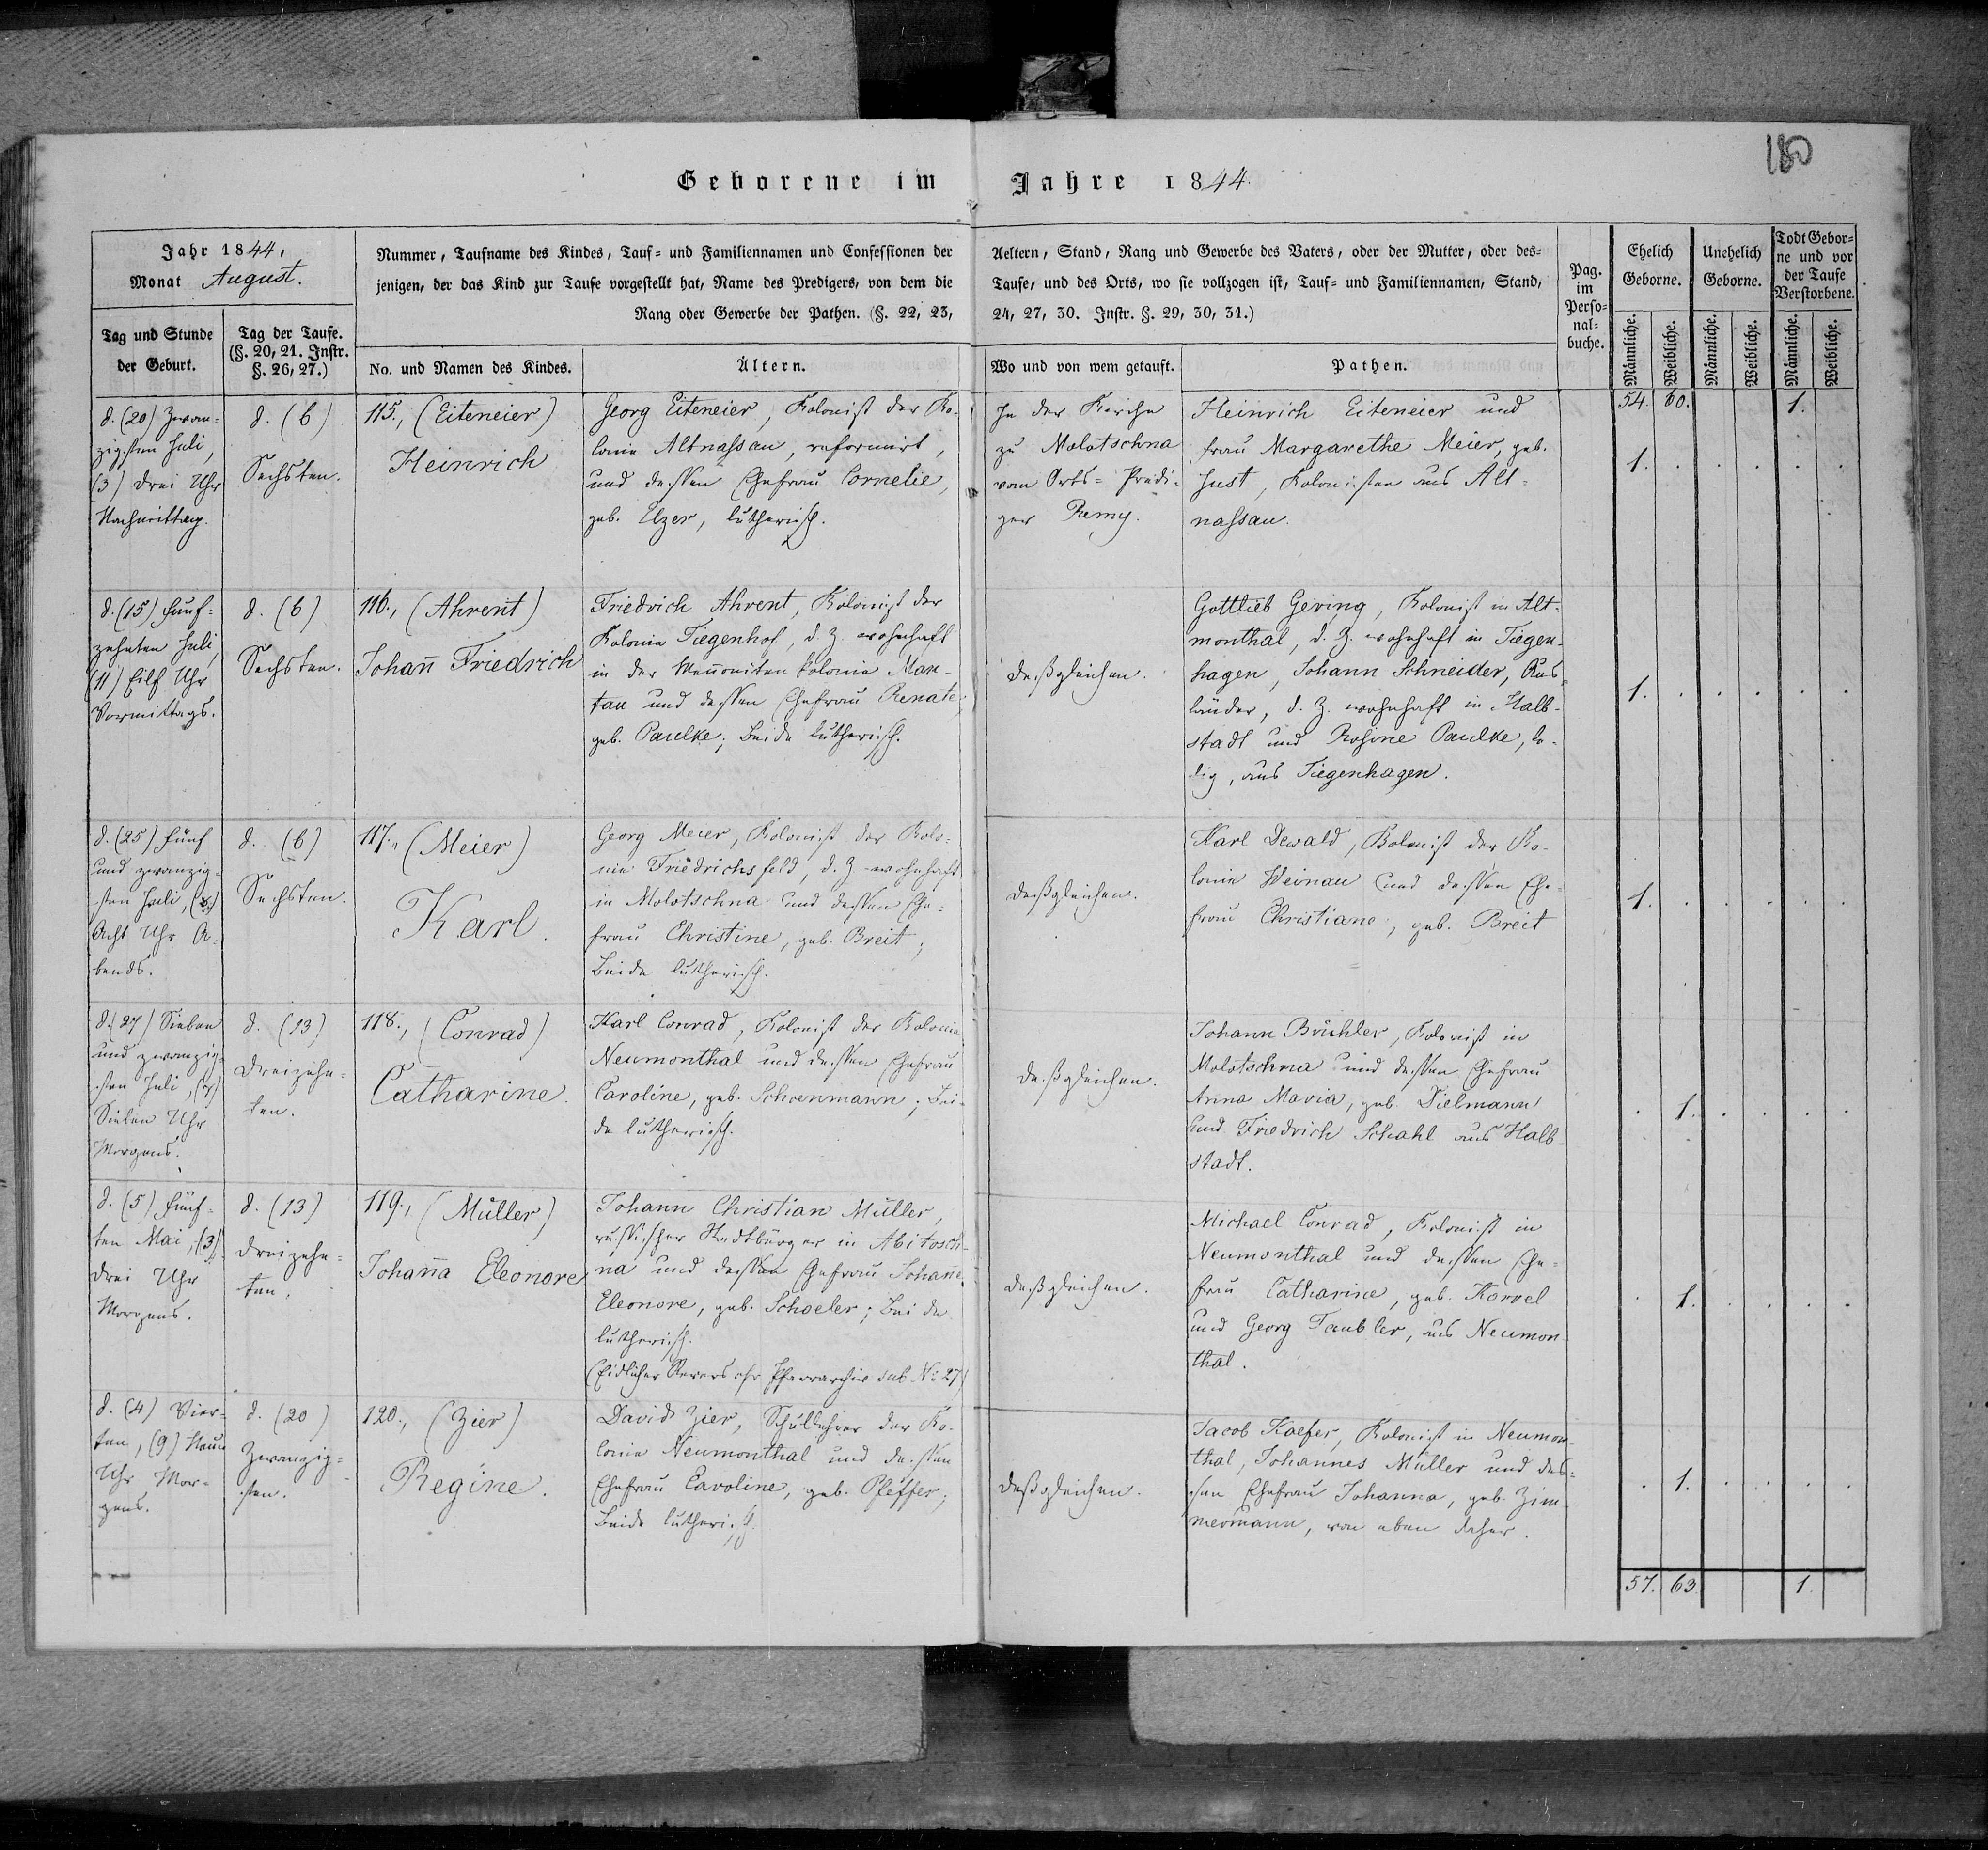 180
Geborene im Jahre 1844.
Jahr 1844,
Monat August.
Tag und Stunde
der Geburt.
Tag der Taufe.
(§. 20, 21. Instr.
§. 26, 27.)
Nummer, Taufname des Kindes, Tauf- und Familiennamen und Confessionen der
jenigen, der das Kind zur Taufe vorgestellt hat, Name des Predigers, von dem die
Rang oder Gewerbe der Pathen. (§. 22, 23,
No. und Namen des Kindes.
Ältern.
Aeltern, Stand, Rang und Gewerbe des Vaters, oder der Mutter, oder des-
Taufe, und des Orts, wo sie vollzogen ist, Tauf- und Familiennamen, Stand,
24, 27, 30. Instr. §. 29, 30, 31.)
Wo und von wem getauft.
Pathen.
Pag.
im
Perso-
nal-
buche.
Ehelich
Geborne.
Unehelich
Geborne.
Todt Gebor-
ne und vor
der Taufe
Verstorbene.
Männliche.
Weibliche.
Männliche.
Weibliche.
Männliche.
Weibliche.
54. 60. 1.
d. (20) Zwan-
zigsten Juli,
(3) drei Uhr
Nachmittag.
d. (6)
Sechsten.
115., (Eiteneier)
Heinrich
Georg Eiteneier, Kolonist der Ko-
lonie Altnassau, reformirt,
und dessen Ehefrau Cornelie,
geb. Elzer, lutherisch.
In der Kirche
zu Molotschna
vom Orts-Predi-
ger Remy.
Heinrich Eiteneier und
Frau Margarethe Meier, geb.
Just, Kolonisten aus Alt-
nassau.
1.
d. (15) Fünf-
zehnten Juli,
(11) Eilf Uhr
Vormittags.
d. (6)
Sechsten.
116., (Ahrent)
Johan̄ Friedrich
Friedrich Ahrent, Kolonist der
Kolonie Tiegenhof, d. Z. wohnhaft
in der Men̄oniten Kolonie Mun-
tau und dessen Ehefrau Renate,
geb. Paulke; Beide lutherisch.
deßgleichen.
Gottlieb Gering, Kolonist in Alt-
monthal, d. Z. wohnhaft in Tiegen-
hagen, Johann Schneider, Aus-
länder, d. Z. wohnhaft in Halb-
stadt und Rosine Paulke, le-
dig, aus Tiegenhagen.
1.
d. (25) Fünf
und zwanzig-
sten Juli, (8)
Acht Uhr A-
bends.
d. (6)
Sechsten.
117., (Meier)
Karl.
Georg Meier, Kolonist der Kolo-
nie Friedrichsfeld, d. Z. wohnhaft
in Molotschna und dessen Ehe-
frau Christine, geb. Breit;
Beide lutherisch.
deßgleichen.
Karl Dewald, Kolonist der Ko-
lonie Weinau und dessen Ehe-
frau Christiane, geb. Breit
1.
d. (27) Sieben
und zwanzig-
sten Juli, (7)
Sieben Uhr
Morgens.
d. (13)
Dreizehn-
ten.
118., (Conrad)
Catharine.
Karl Conrad, Kolonist der Kolonie
Neumonthal und dessen Ehefrau
Caroline, geb. Schoenmann; Bei-
de lutherisch.
deßgleichen.
Johann Brühler, Kolonist in
Molotschna und dessen Ehefrau
Anna Maria, geb. Dielmann
und Friedrich Schahl aus Halb-
stadt.
1.
d. (5) Fünf-
ten Mai, (3)
Drei Uhr
Morgens.
d. (13)
Dreizehn-
ten.
119., (Müller)
Johan̄a Eleonore
Johann Christian Müller,
russischer Stadtbürger in Abitosch-
na und dessen Ehefrau Johan̄e
Eleonore, geb. Schoeler; Beide
lutherisch.
(Eidlicher Revers ins Pfarrarchiv sub № 27)
deßgleichen.
Michael Conrad, Kolonist in
Neumonthal und dessen Ehe-
frau Catharine, geb. Korrel
und Georg Taubler, aus Neumon
thal.
1.
d. (4) Vier-
ten, (9) Neun
Uhr Mor-
gens.
d. (20)
Zwanzig-
sten.
120., (Zier)
Regine.
David Zier, Schullehrer der Ko-
lonie Neumonthal und dessen
Ehefrau Caroline, geb. Pfeffer;
Beide lutherisch.
deßgleichen.
Jacob Kaefer, Kolonist in Neumon-
thal, Johannes Müller und des-
sen Ehefrau Johanna, geb. Zim
mermann, von eben daher.
1.
57. 63. 1.